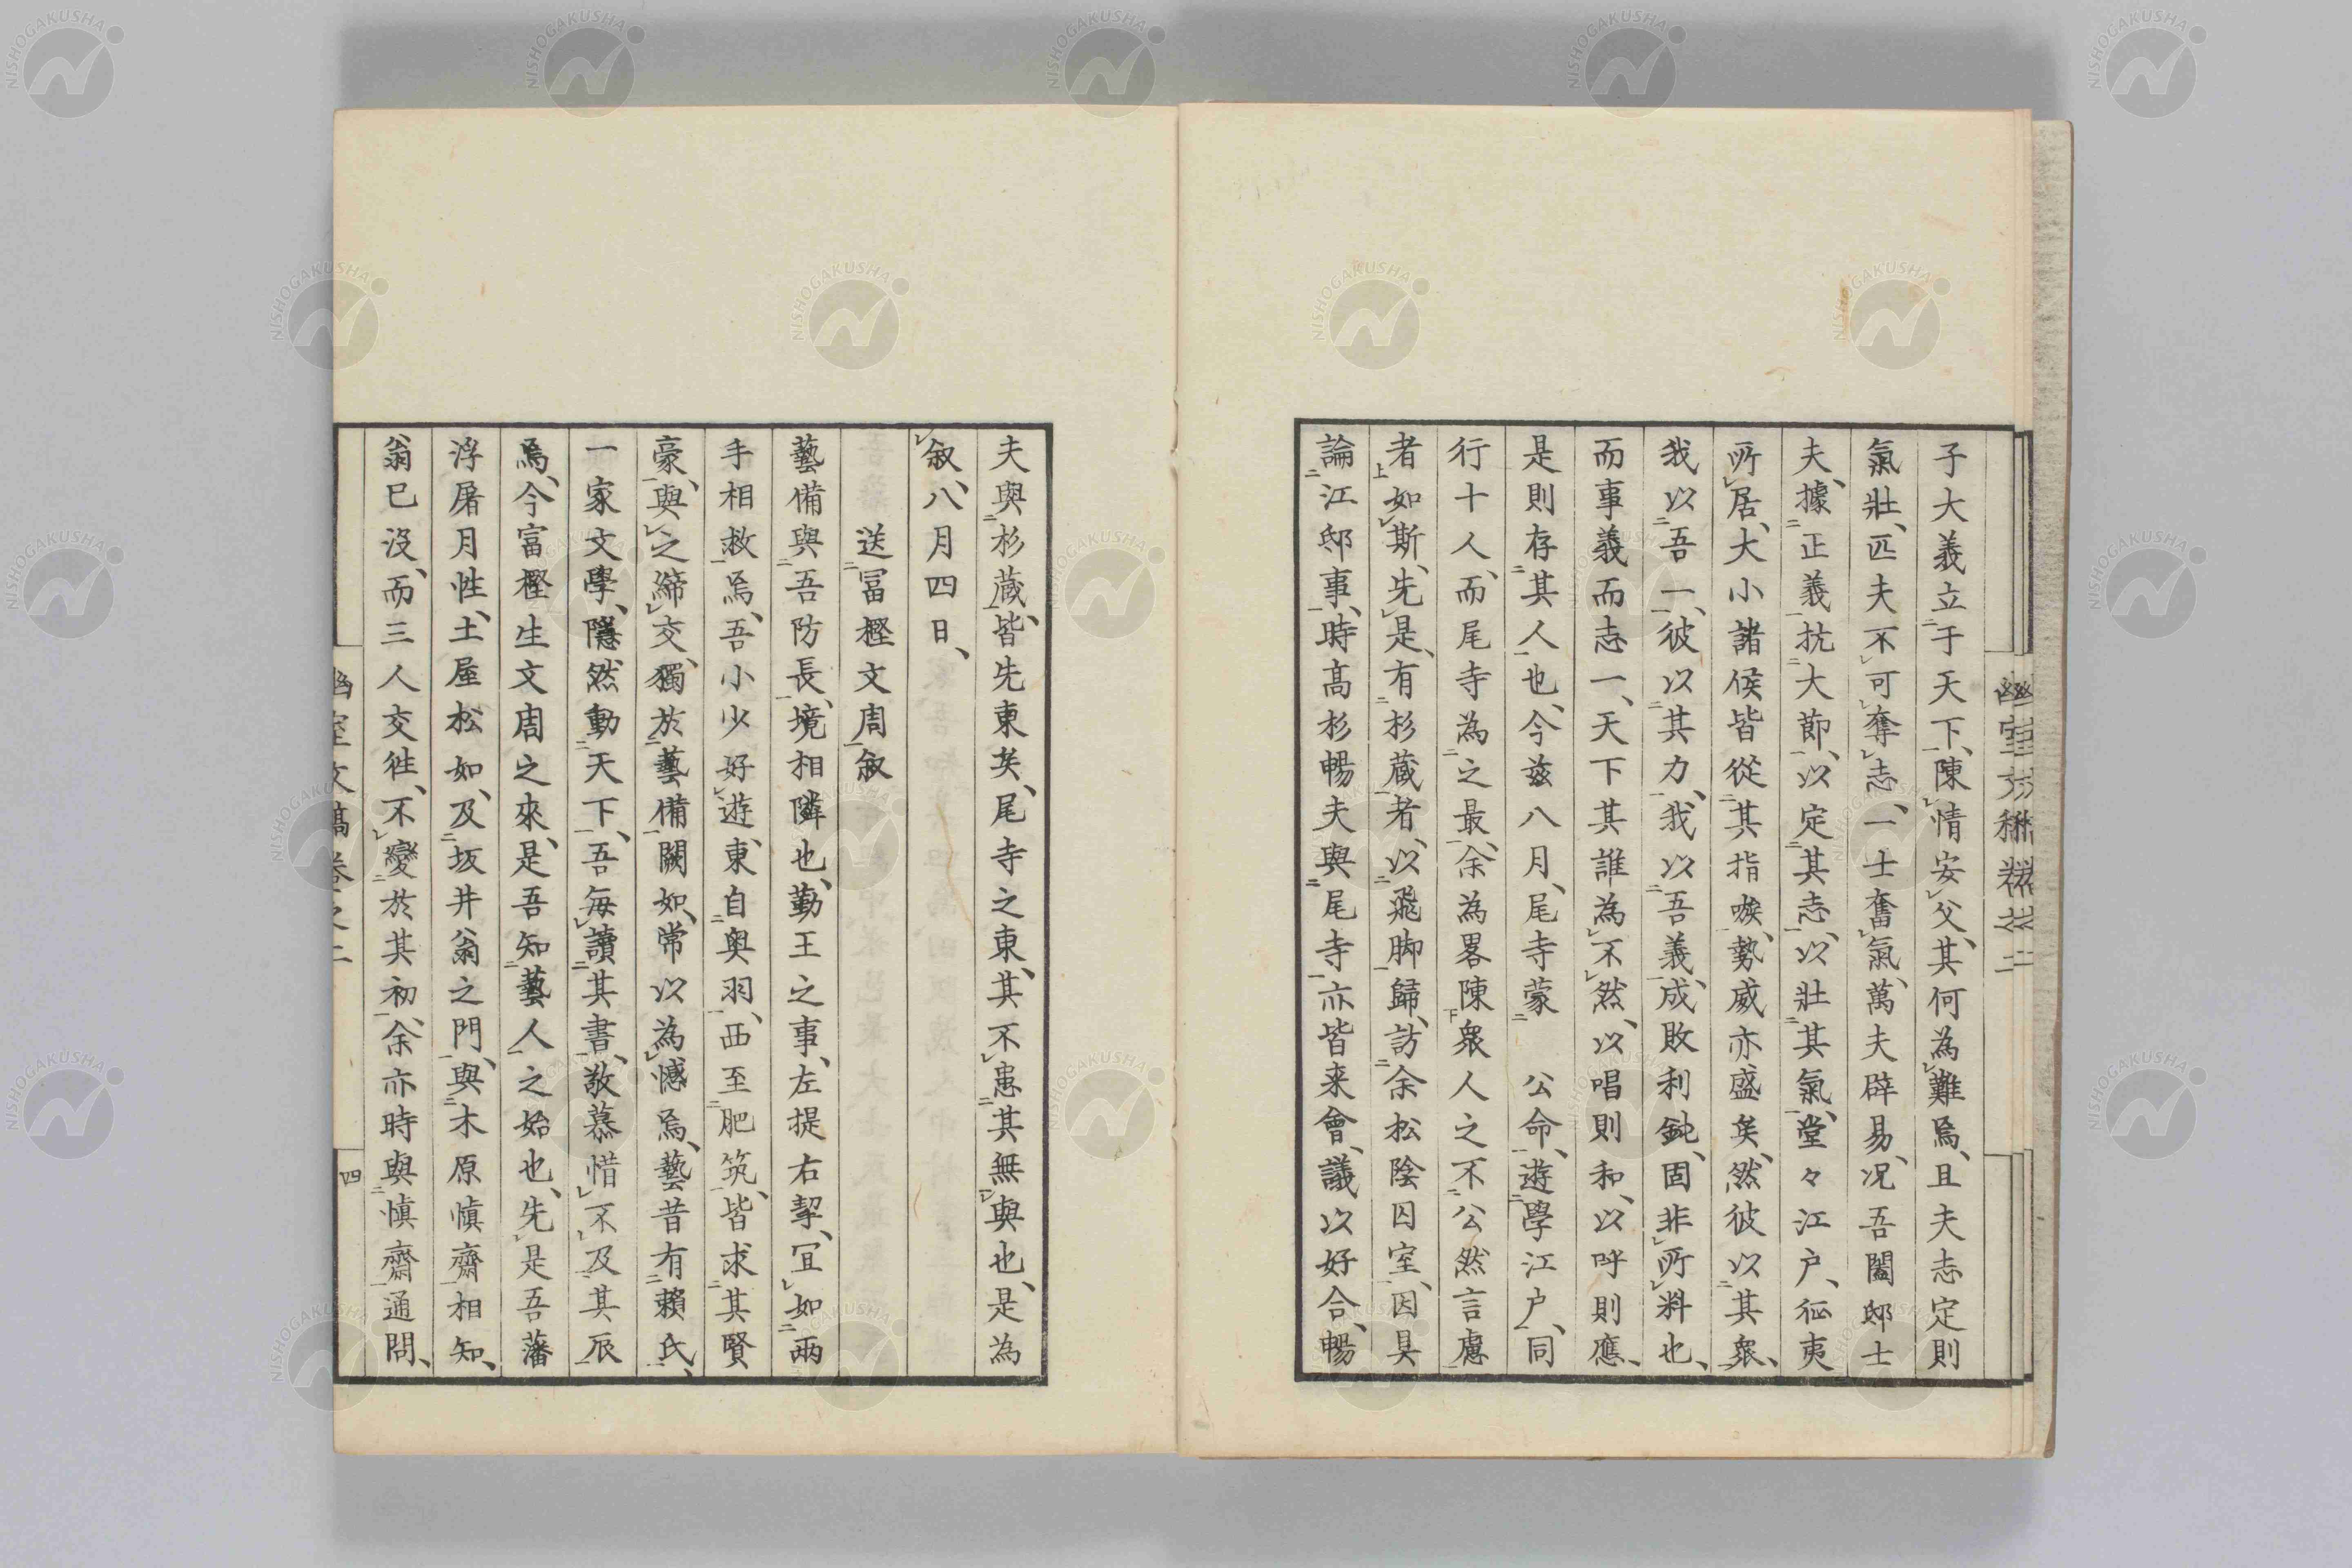 子大義立于天下、陳情安父、其何為難焉、且夫志定則
氣壯、匹夫不可奪志、一士奮氣、萬夫辟易、況吾闔邸士
夫、據正義抗大節、以定其志、以壯其氣、堂々江戶、征夷
所居、大小諸侯皆從其指嗾、勢威亦盛矣、然彼以其衆、
我以吾一、彼以其力、我以吾義、成敗利鈍、固非所料也、
而事義而志一、天下其誰為不然、以唱則和、以呼則應、
是則存其人也、今茲八月、尾寺蒙 公命、遊學江戶、同
行十人、而尾寺為之最、余為畧陳衆人之不公然言慮
者如斯、先是、有杉蔵者、以飛脚歸、訪余松陰囚室、因具
論江邸事、時高杉暢夫與尾寺亦皆来會、議以好合、暢
夫與杉蔵、皆先東矣、尾寺之東、其不患其無與也、是為
叙、八月四日、
送冨樫文周叙
藝備與吾防長、境相隣也、勤王之事、左提右挈、冝如兩
手相救焉、吾小少好遊、東自奥羽、西至肥筑、皆求其賢
豪、與之締交、獨於藝備闕如、常以為憾焉、藝昔有賴氏、
一家文學、隱然動天下、吾毎讀其書、敬慕惜不及其辰
焉、今富樫生文周之來、是吾知藝人之始也、先是吾藩
浮屠月性、土屋松如、及坂井翁之門、與木原愼齋相知、
翁已沒、而三人交徃、不變於其初、余亦時與愼齋通問、
幽室文稿卷之二
四
NISHOGAKUSHA